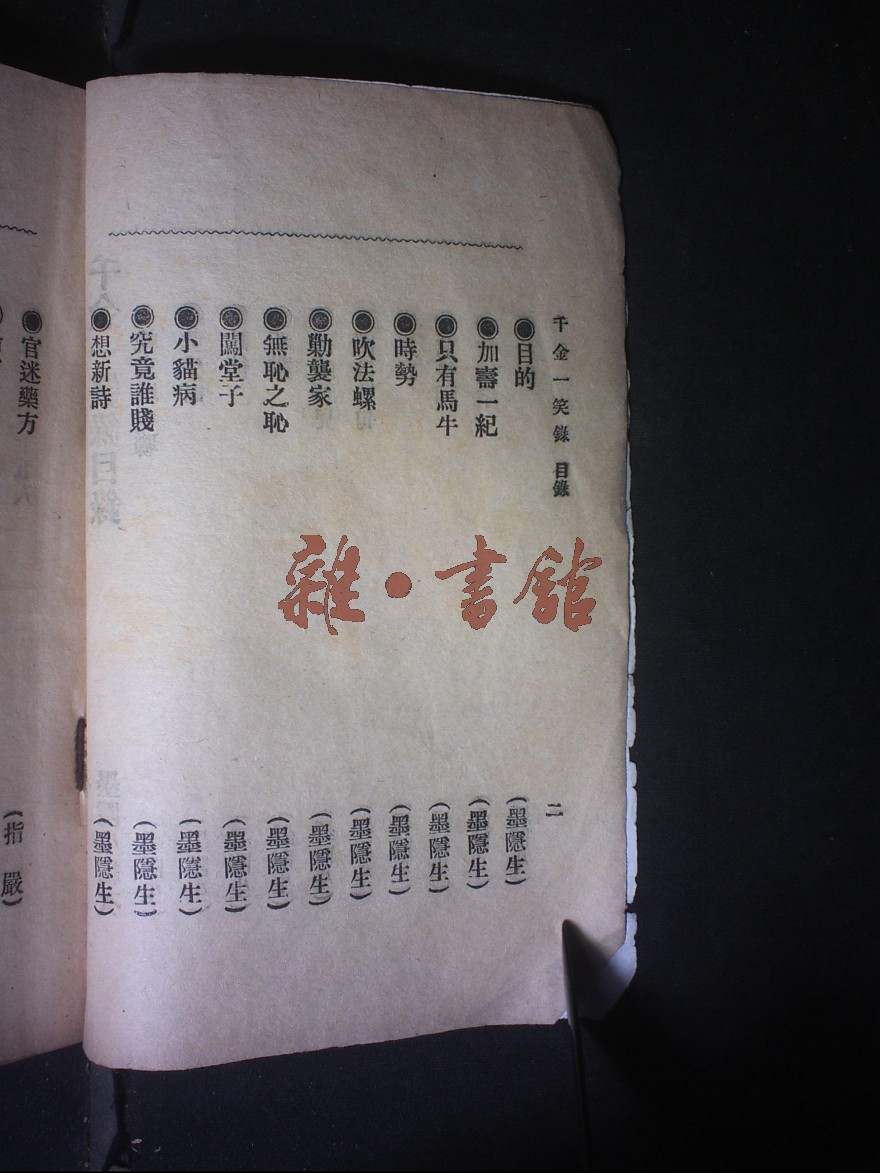 千金一笑錄 目錄 二
◉目的 (墨隱生)
◉加壽一紀 (墨隱生)
◉只有馬牛 (墨隱生)
◉時勢 (墨隱生)
◉吹法螺 (墨隱生)
◉勦襲家 (墨隱生)
◉無恥之恥 (墨隱生)
◉闖堂子 (墨隱生)
◉小貓病 (墨隱生)
◉究竟誰賤 (墨隱生)
◉想新詩 (墨隱生)
◉官迷藥方 (指嚴)
雜・書館